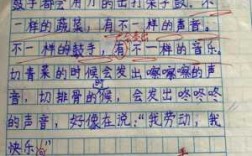 鼓手都会用力的击打架子鼓。不
一样的蔬菜，有不一样的声音。
不一样的鼓手，有不一样的音乐。
切青菜的时候会发出嚓嚓嚓的声
音，切排骨的候，会发出咚咚咚
的声音，好像在说“我劳动，我
快乐”